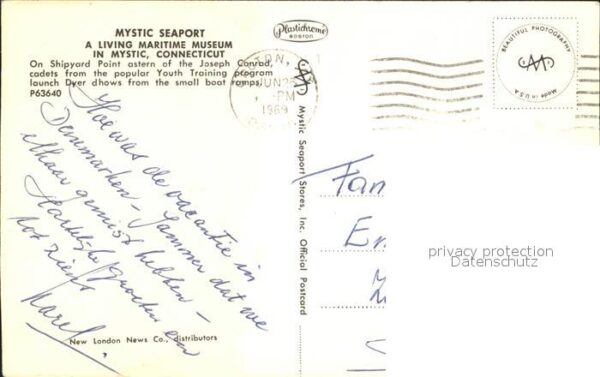 MYSTIC SEAPORT
A LIVING MARITIME MUSEUM
IN MYSTIC, CONNECTICUT
On Shipyard Point astern of the Joseph Conrad,
cadets from the popular Youth Training program
launch Dyer dhows from the small boat ramps.
P63640
Plastichrome
BOSTON
JUN 26
PM
1969
BEAUTIFUL PHOTOGRAPHY
Made in U.S.A
Mystic Seaport Stores, Inc. Official Postcard
Hoe was de vacantie in
Denemarken - Jammer dat we
elkaar gemist hebben -
Hartelijke groeten en
tot ziens
Karel
Fam
En
privacy protection
Datenschutz
New London News Co., distributors